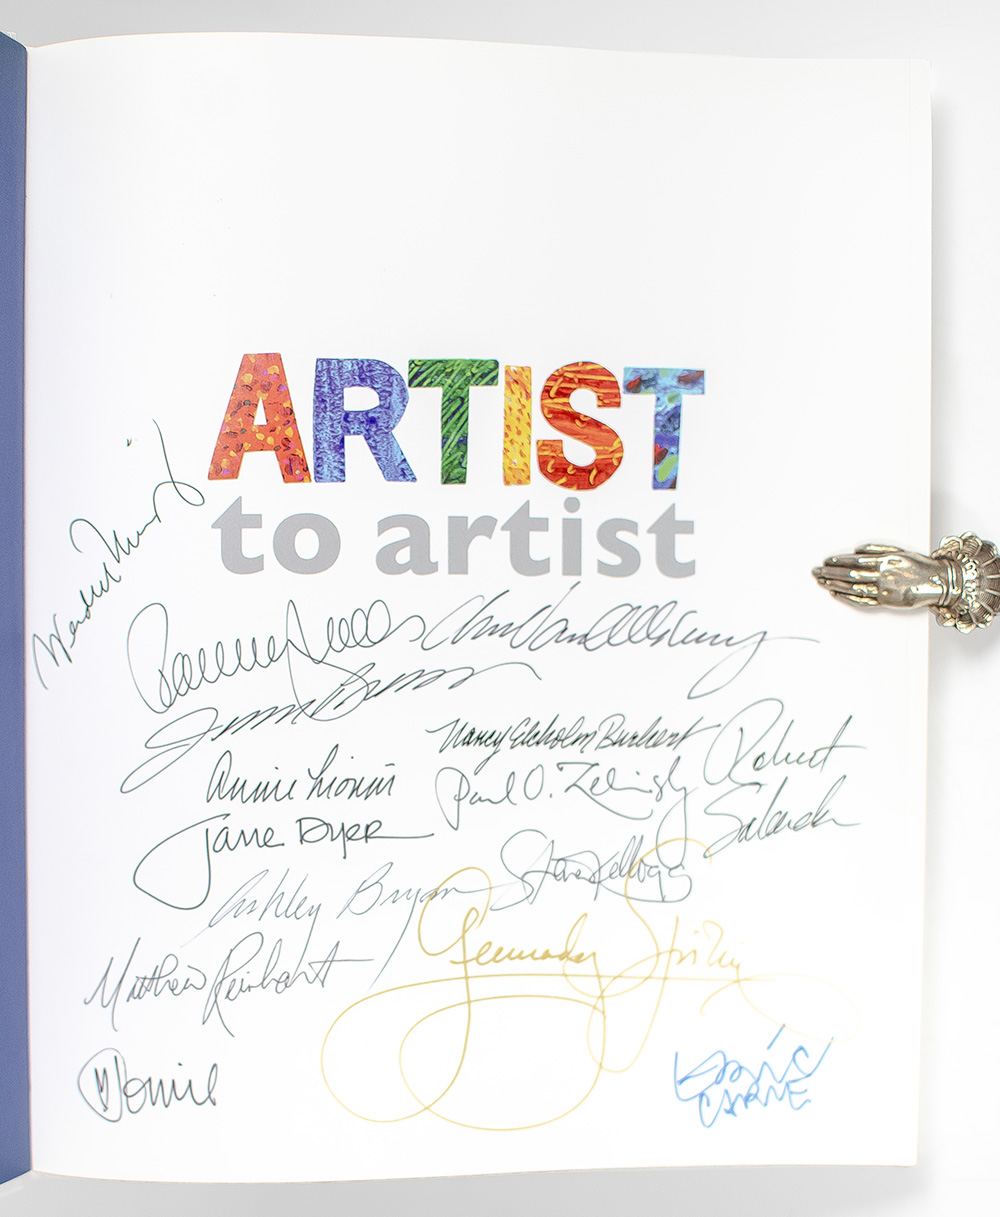 ARTIST
to artist
Wendell Minor
Jerry Pinkney
Chris Van Allsburg
Nancy Ekholm Burkert
Annie Lionni
Paul O. Zelinsky
Robert
Sabuda
Jane Dyer
Steven Kellogg
Ashley Bryan
Gennady Spirin
Matthew Reinhart
Tomie
Eric
CARLE